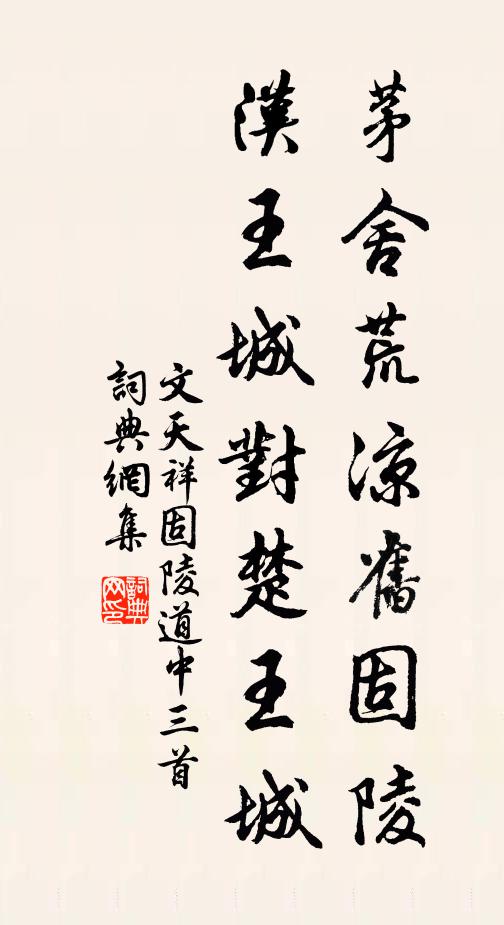 茅舍荒涼舊固陵
漢王城對楚王城
文天祥固陵道中三首
詞典網集
詞典
网印